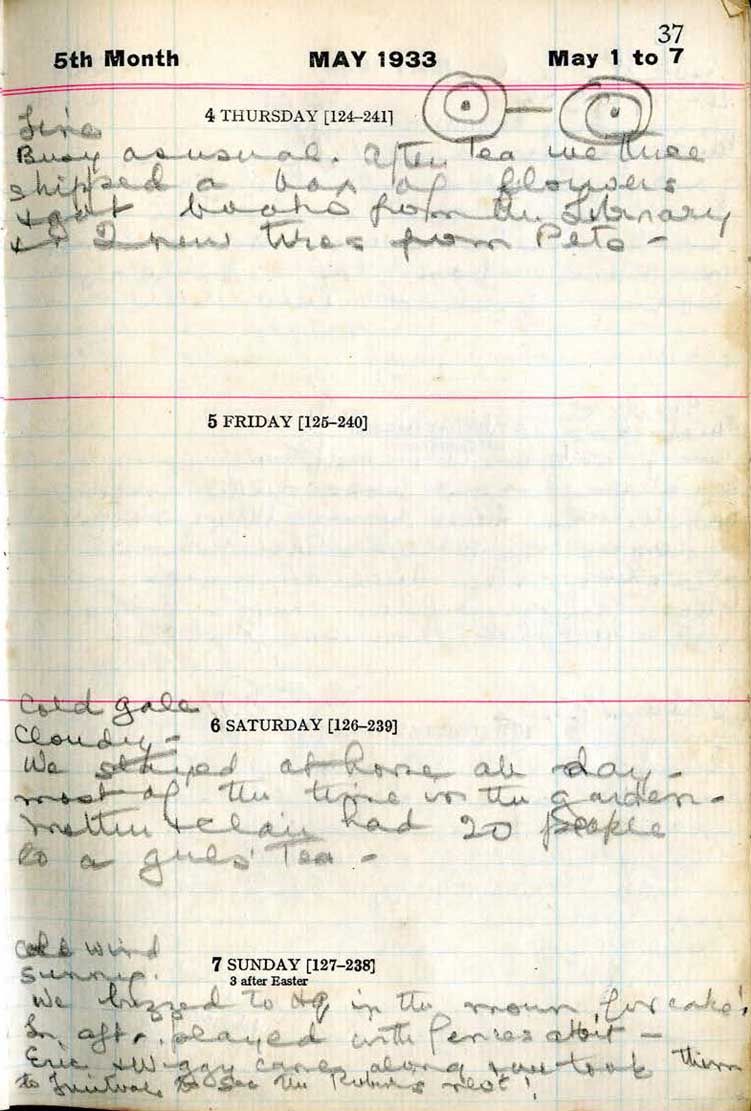 37
5th Month MAY 1933 May 1 to 7
4 THURSDAY [124–241]
Fine
Busy as usual. After Tea we three
shipped a box of flowers
+ got books from the Library
+ 2 new tires from Pete –
5 FRIDAY [125–240]
Cold gale
Cloudy –
6 SATURDAY [126–239]
We stayed at home all day –
most of the time in the garden –
+ Clair had 20 people
to a girls' Tea –
cold wind
Sunny.
7 SUNDAY [127–238]
3 after Easter
We buzzed to in the morn. for cake!
In aft. played with fences a bit –
Eric + came along + we took them
to to see the Robins nest!